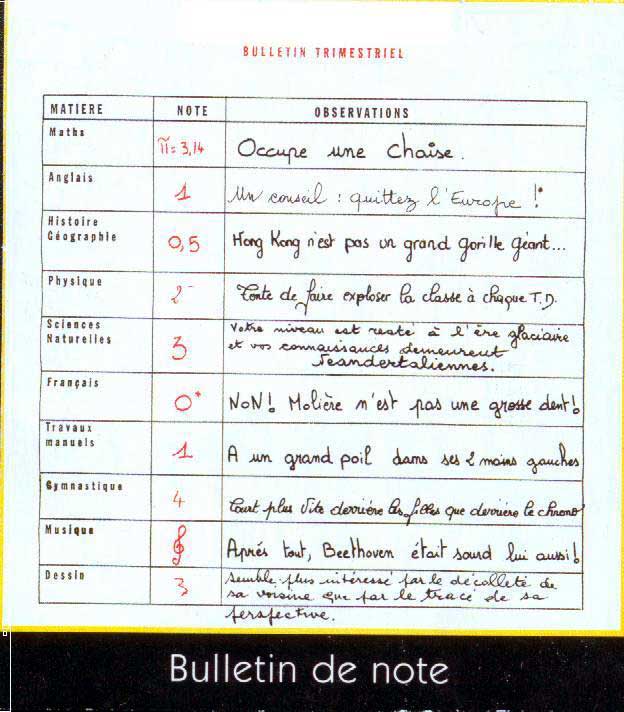 BULLETIN TRIMESTRIEL
MATIERE NOTE OBSERVATIONS
Maths π = 3,14 Occupe une chaise.
Anglais 1 Un conseil : quittez l'Europe !
Histoire
Géographie 0,5 Hong Kong n'est pas un grand gorille géant...
Physique 2⁻ Tente de faire exploser la classe à chaque T.D.
Sciences
Naturelles 3 Votre niveau est resté à l'ère glaciaire
et vos connaissances demeurent
Neandertaliennes.
Français 0* NoN! Molière n'est pas une grosse dent!
Travaux
manuels 1 A un grand poil dans ses 2 mains gauches
Gymnastique 4 Court plus vite derrière les filles que derrière le chrono
Musique 𝄞 Après tout, Beethoven était sourd lui aussi!
Dessin 3 Semble plus intéressé par le décolleté de
sa voisine que par le tracé de sa
perspective.
Bulletin de note